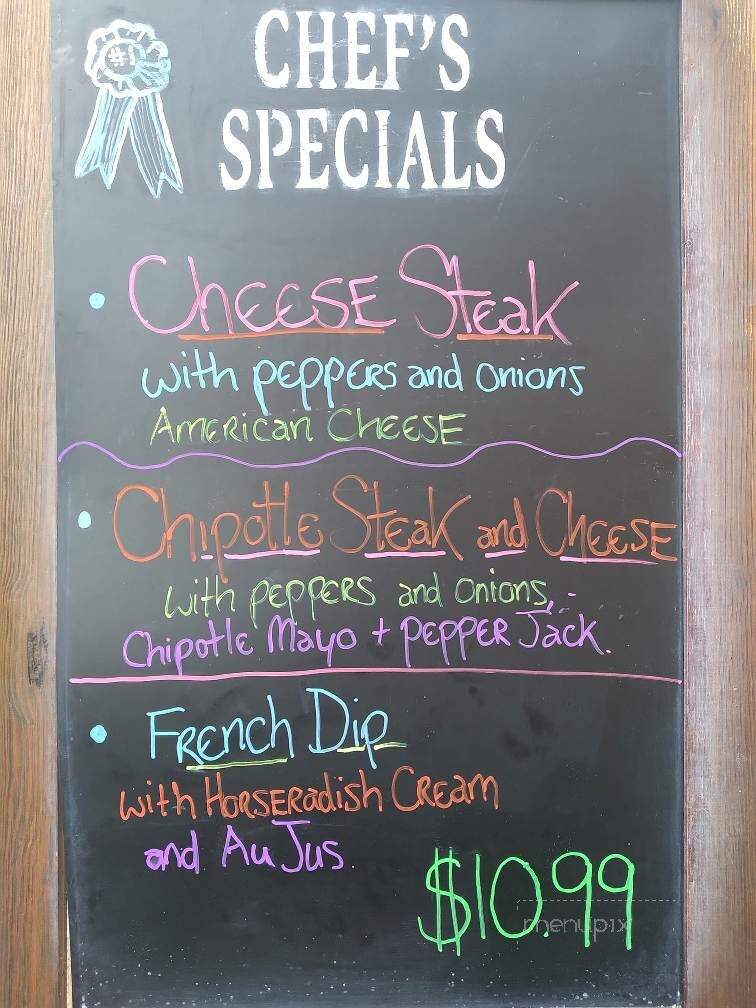 #1
CHEF'S
SPECIALS
• Cheese Steak
with peppers and onions
American Cheese
• Chipotle Steak and Cheese
with peppers and onions,
Chipotle Mayo + Pepper Jack.
• French Dip
with Horseradish Cream
and Au Jus.
$10.99
menupix